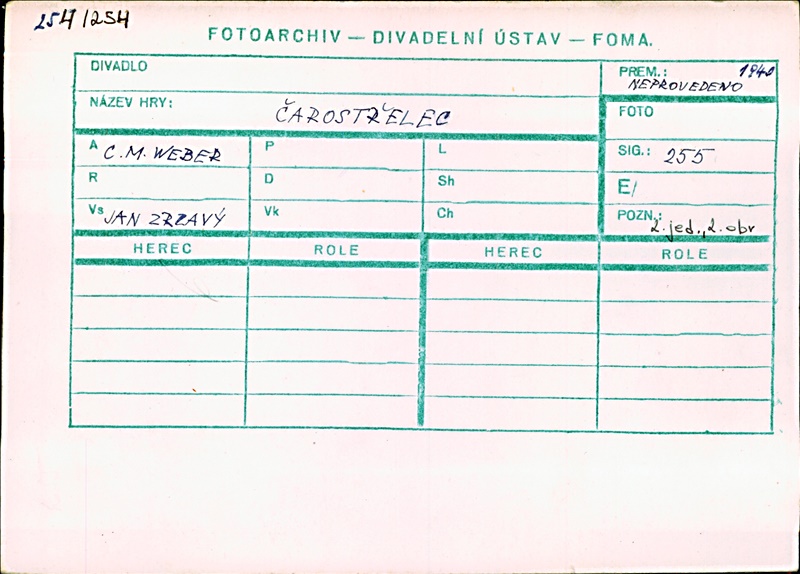 254/254
FOTOARCHIV — DIVADELNÍ ÚSTAV — FOMA.
DIVADLO
PREM.: 1940
NEPROVEDENO
NÁZEV HRY: ČAROSTŘELEC
FOTO
A C. M. WEBER P L
SIG.: 255
R D Sh
E/
Vs JAN ZRZAVÝ Vk Ch
POZN.: 2. jed., 2. obr
HEREC ROLE HEREC ROLE